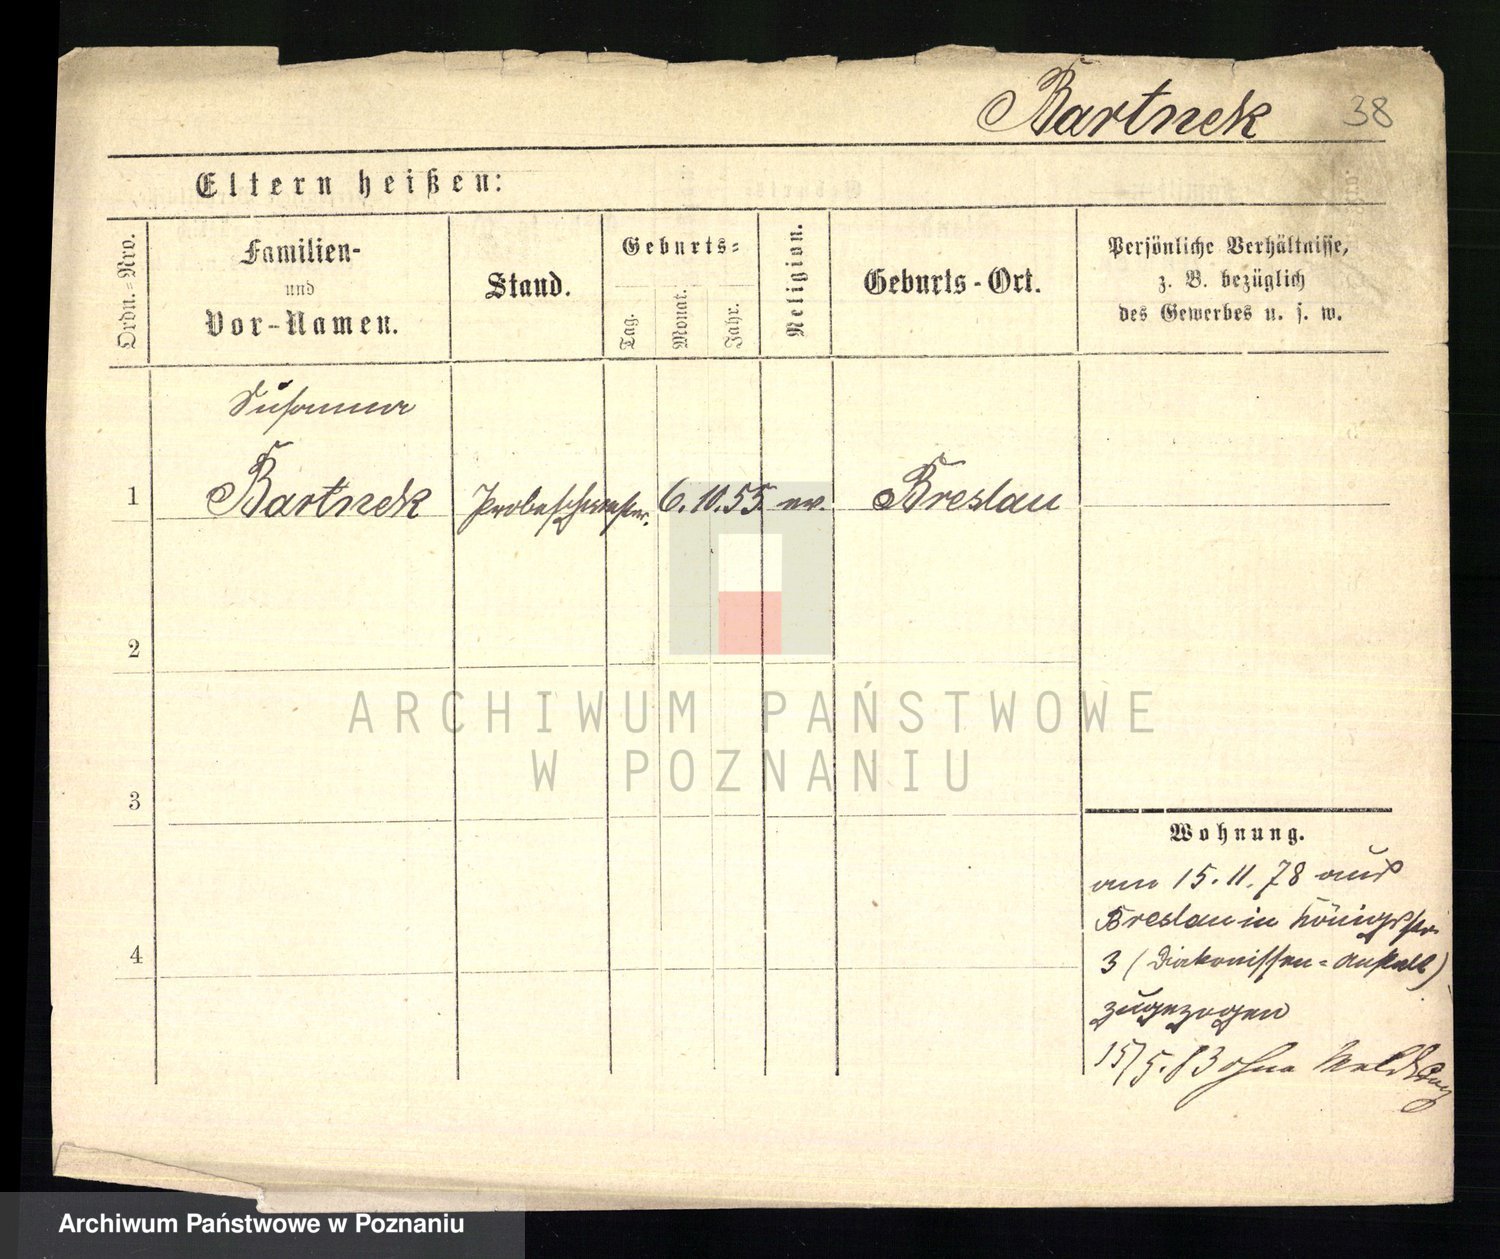 Bartnek 38
Eltern heißen:
Ordn.=Nro.
Familien-
und
Vor-Namen.
Stand.
Geburts=
Tag.
Monat.
Jahr.
Religion.
Geburts-Ort.
Persönliche Verhältnisse,
z. B. bezüglich
des Gewerbes u. s. w.
Susanna
1 Bartnek Probeschwester. 6. 10. 55. ev. Breslau
2
3
4
Wohnung.
am 15. 11. 78 aus
Breslau in Königsstr.
3 (Diakonissen=Anstalt)
zugezogen
15/5. 83 ohne
ARCHIWUM PAŃSTWOWE
W POZNANIU
Archiwum Państwowe w Poznaniu